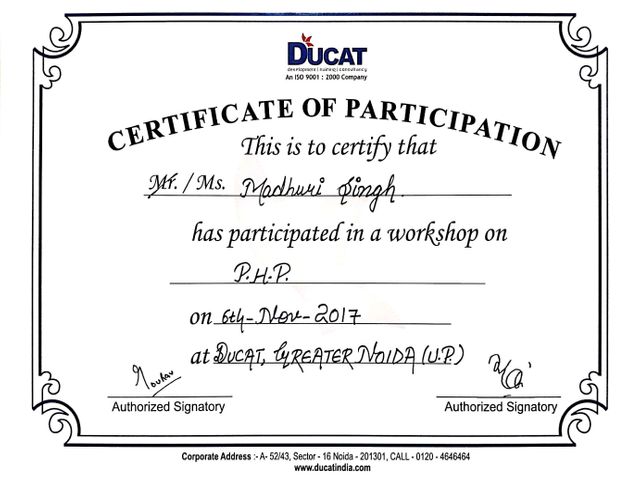 DUCAT
development | training | consultancy
An ISO 9001 : 2000 Company
CERTIFICATE OF PARTICIPATION
This is to certify that
Mr. / Ms. Madhuri Singh.
has participated in a workshop on
P.H.P.
on 6th-Nov-2017
at DUCAT, GREATER NOIDA (U.P.)
Authorized Signatory Authorized Signatory
Corporate Address :- A- 52/43, Sector - 16 Noida - 201301, CALL - 0120 - 4646464
www.ducatindia.com